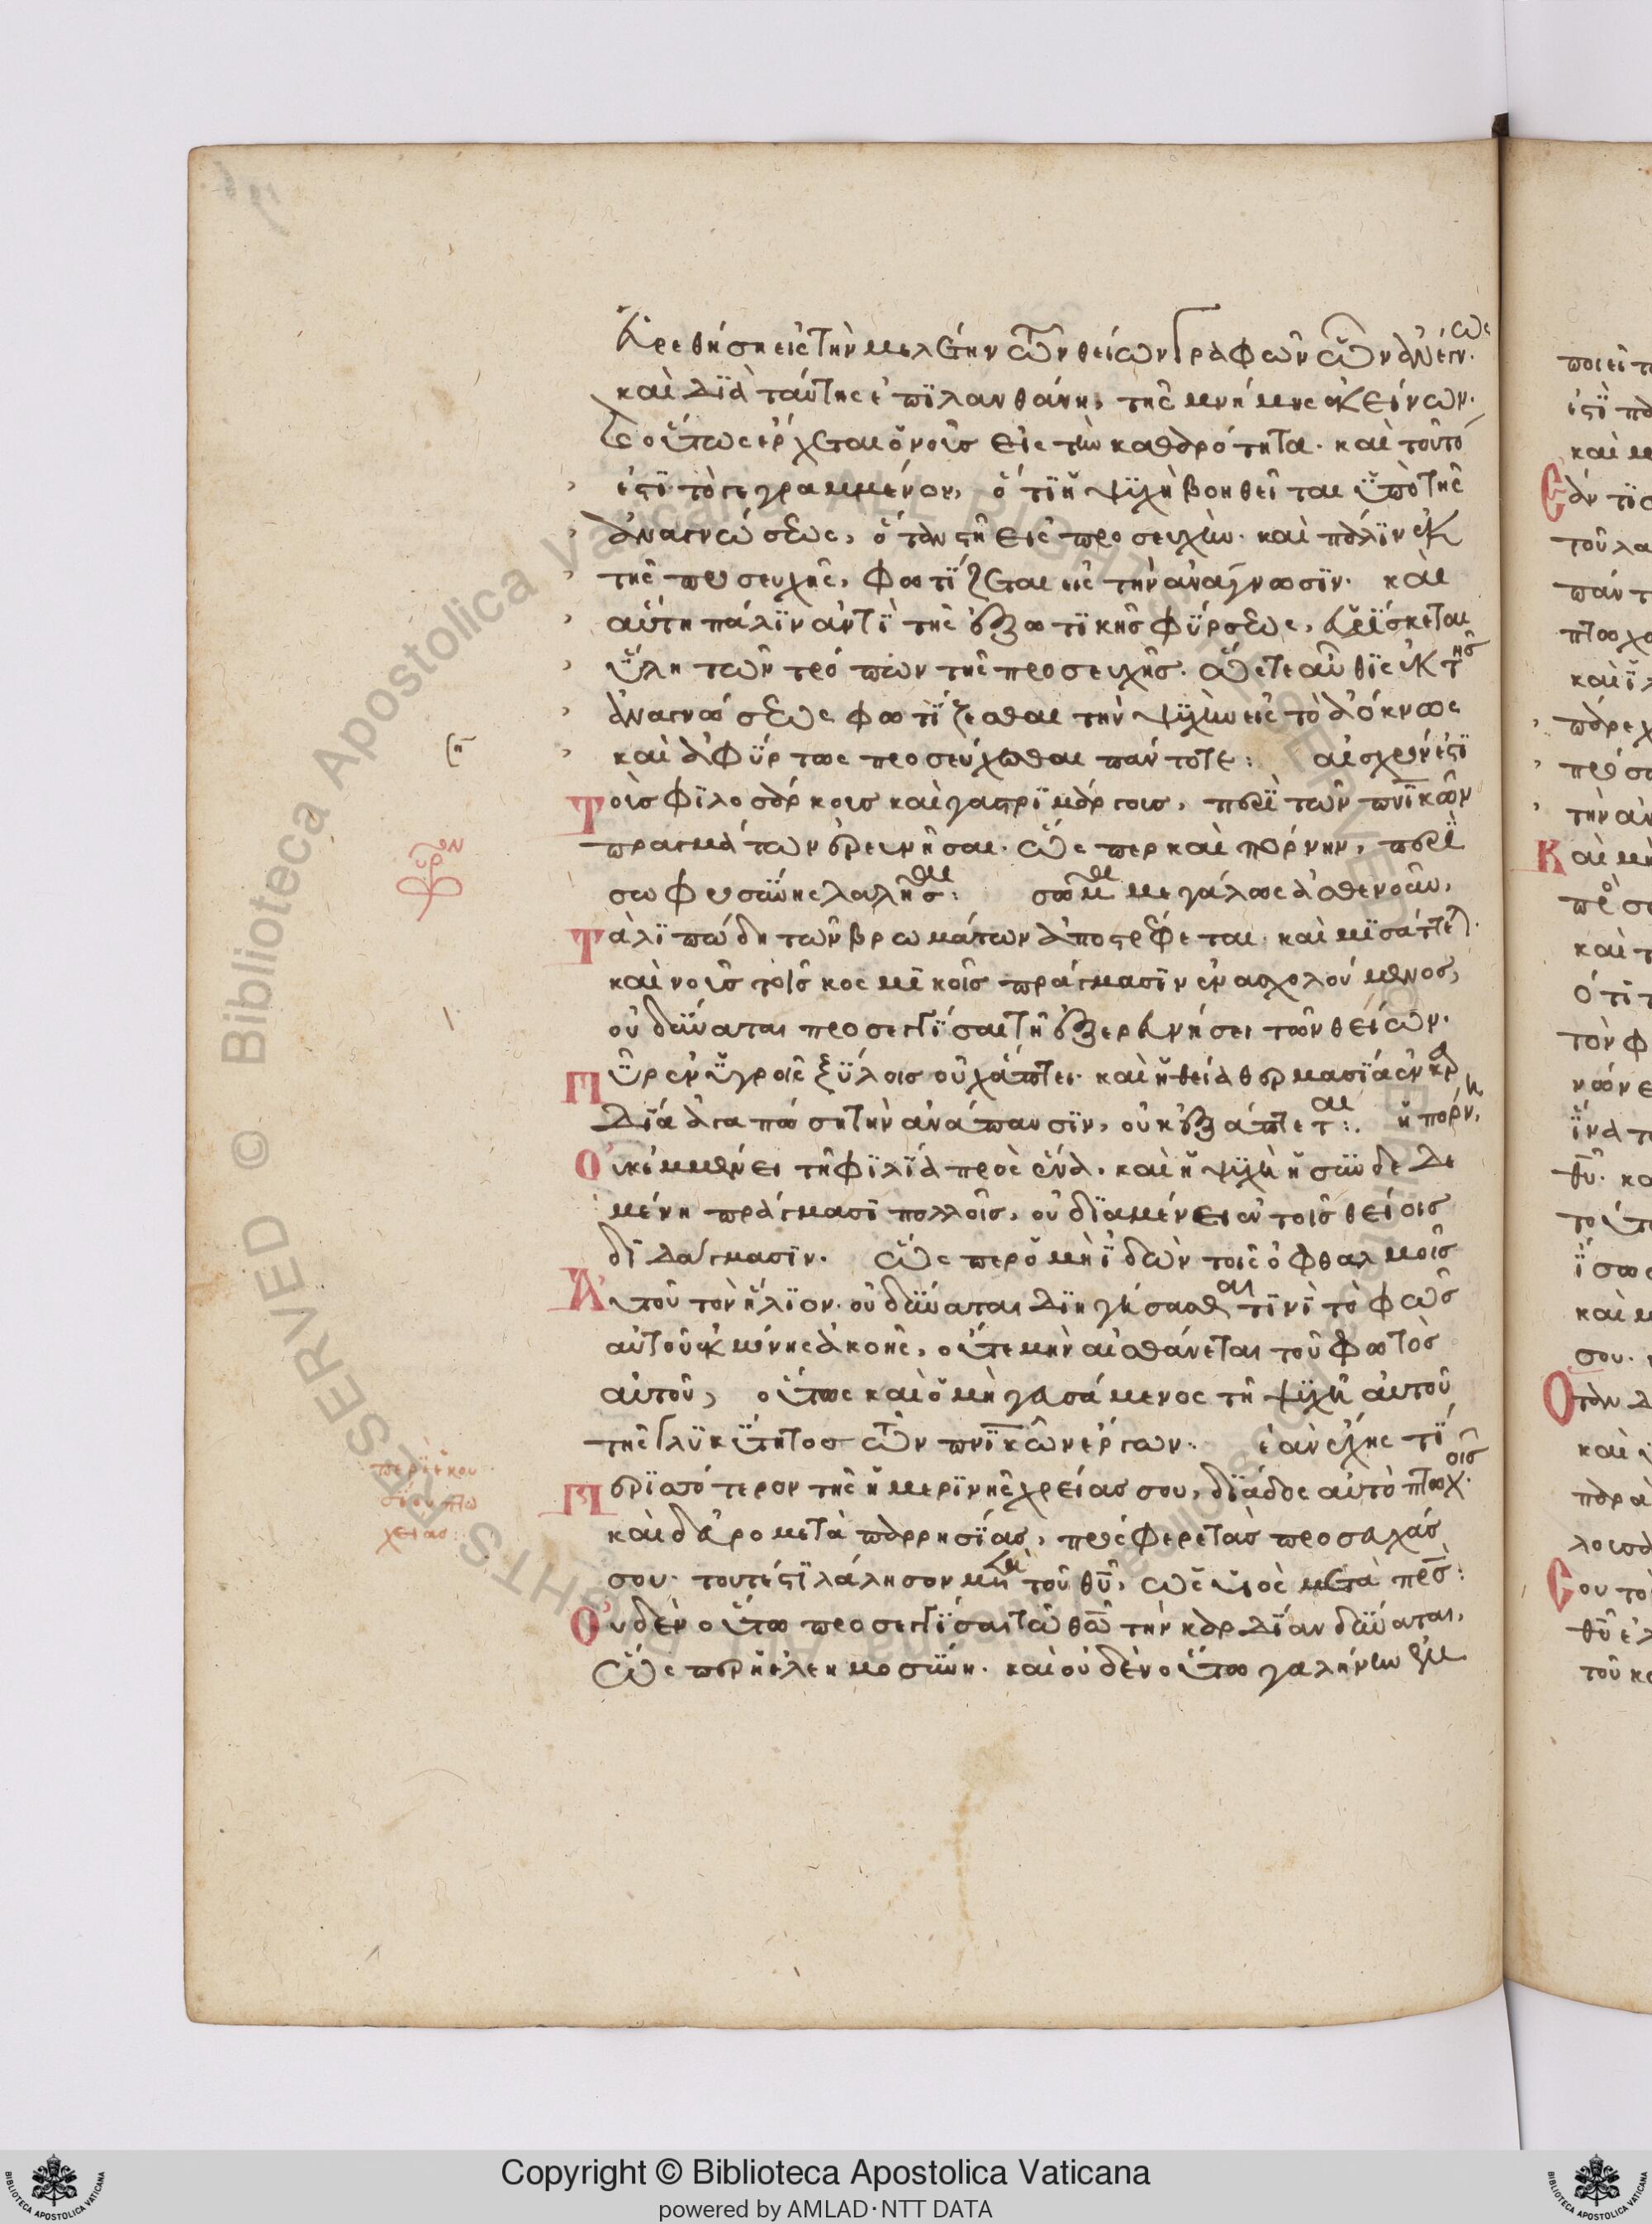 ἀρεθήση εἰς τὴν μελέτην τῶν θείων γραφῶν τῶν ἁγίων.
καὶ διὰ ταύτης ἐπϊλανθάνη, τῆς μνήμης ἐκείνων.
καὶ οὕτως ἔρχεται ὁ νοῦς εἰς τὴν καθαρότητα. καὶ τοῦτό
ἐστϊ τὸ γεγραμμένον, ὅτϊ ἡ ψϋχὴ βοηθεῖται ὑπὸ τῆς
ἀναγνώσεως, ὅταν στῆ εἰς προσευχήν. καὶ πάλϊν ἐκ
τῆς προσευχῆς, φωτΐζεται εἰς τὴν ἀνάγνωσϊν. καὶ
αὕτη πάλϊν ἀντῒ τῆς ἐξωτϊκῆς φΰρσεως, εὑρΐσκεται
ὕλη τῶν τρόπων τῆς προσευχῆς. ὥστε αὖθϊς ἐκ τῆς
ἀναγνώσεως φωτΐζεσθαι τὴν ψϋχὴν εἰς τὸ ἀόκνως
καὶ ἀφΰρτως προσεύχεσθαι πάντοτε: αἰσχρόν ἐστϊ
Τοῖς φϊλοσάρκοις καὶ γαστρϊμάργοις, περῒ τῶν πνϊκῶν
πραγμάτων ἐρευνῆσαι. ὥσπερ καὶ πόρνην, περῒ
σωφροσύνης λαλῆσαι: σῶμα μεγάλως ἀσθενοῦν,
Τὰ λϊπώδη τῶν βρωμάτων ἀποστρέφεται. καὶ μϊσάττει.
καὶ νοῦς τοῖς κοσμϊκοῖς πράγμασϊν ἐνασχολούμενος,
οὐ δΰναται προσεγγΐσαι τῆ ἐξερευνήσει τῶν θείων.
Πῦρ ἐν ὑγροῖς ξΰλοις οὐχ ἅπτει. καὶ ἡ θεία θερμασΐα ἐν καρ
δΐα ἀγαπώση τὴν ἀνάπαυσϊν, οὐκ ἐξάπτεται:. ἡ πόρνη,
Οὐκ ἐμμένει τῆ φϊλΐα πρὸς ἕνα. καὶ ἡ ψϋχὴ ἡ συνδεδε
μένη πράγμασϊ πολλοῖς, οὐ δϊαμένει ἐν τοῖς θείοις
δϊδάγμασϊν. ὥσπερ ὁ μὴ ἰδὼν τοῖς ὀφθαλμοῖς
Αὐτοῦ τὸν ἥλϊον. οὐ δΰναται δϊηγήσασθαι τϊνῒ τὸ φῶς
αὐτοῦ ἐκ μόνης ἀκοῆς, οὔτε μὴν αἰσθάνεται τοῦ φωτὸς
αὐτοῦ, οὕτως καὶ ὁ μὴ γευσάμενος τῆ ψϋχῆ αὐτοῦ
τῆς γλϋκύτητος τῶν πνϊκῶν ἔργων. ἐὰν ἔχης τΐ
Περϊσσότερον τῆς ἡμερϊνῆς χρείας σου, δϊάδος αὐτὸ πτωχοῖς.
καὶ δεῦρο μετὰ παρρησΐας, πρόσφερε τὰς προσευχάς
σου. τουτέστϊ λάλησον μετὰ τοῦ θῦ, ὡς υἱὸς μετὰ πρσ:
Οὐδὲν οὕτω προσεγγΐσαι τῶ θῶ τὴν καρδΐαν δΰναται,
ὥσπερ ἡ ἐλεημοσΰνη. καὶ οὐδὲν οὕτω γαλήνην ἐμ
ὡραῖον
περῒ ἑκου
σΐου πτω
χείας:
Copyright © Biblioteca Apostolica Vaticana
powered by AMLAD·NTT DATA